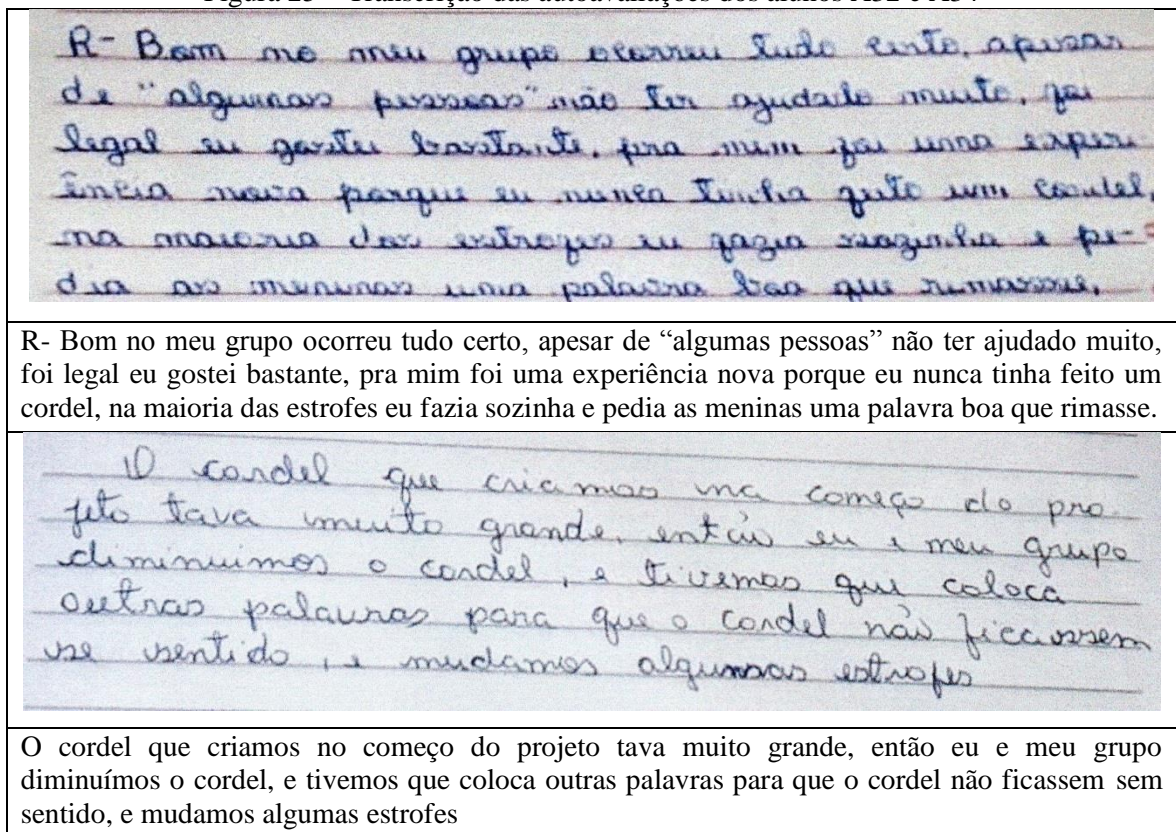 R- Bom no meu grupo ocorreu tudo certo, apesar
de "algumas pessoas" não ter ajudado muito, foi
legal eu gostei bastante, pra mim foi uma experi
ência nova porque eu nunca tinha feito um cordel,
na maioria das estrofes eu fazia sozinha e pe-
dia as meninas uma palavra boa que rimasse.
R- Bom no meu grupo ocorreu tudo certo, apesar de “algumas pessoas” não ter ajudado muito,
foi legal eu gostei bastante, pra mim foi uma experiência nova porque eu nunca tinha feito um
cordel, na maioria das estrofes eu fazia sozinha e pedia as meninas uma palavra boa que rimasse.
O cordel que criamos no começo do pro
jeto tava muito grande, então eu e meu grupo
diminuimos o cordel, e tivemos que coloca
outras palavras para que o cordel não ficassem
se sentido, e mudamos algumas estrofes
O cordel que criamos no começo do projeto tava muito grande, então eu e meu grupo
diminuímos o cordel, e tivemos que coloca outras palavras para que o cordel não ficassem sem
sentido, e mudamos algumas estrofes